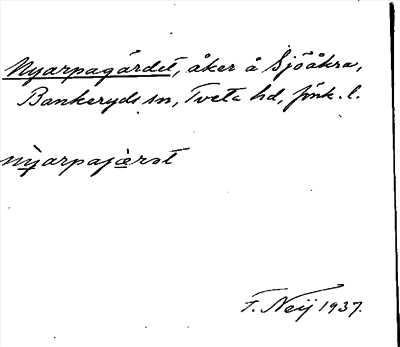 Nyarpagärdet, åker å Sjöåkra,
Bankeryds sn, Tveta hd, Jönk. l.
nỳarpajæ̀rst
F. Neij 1937.